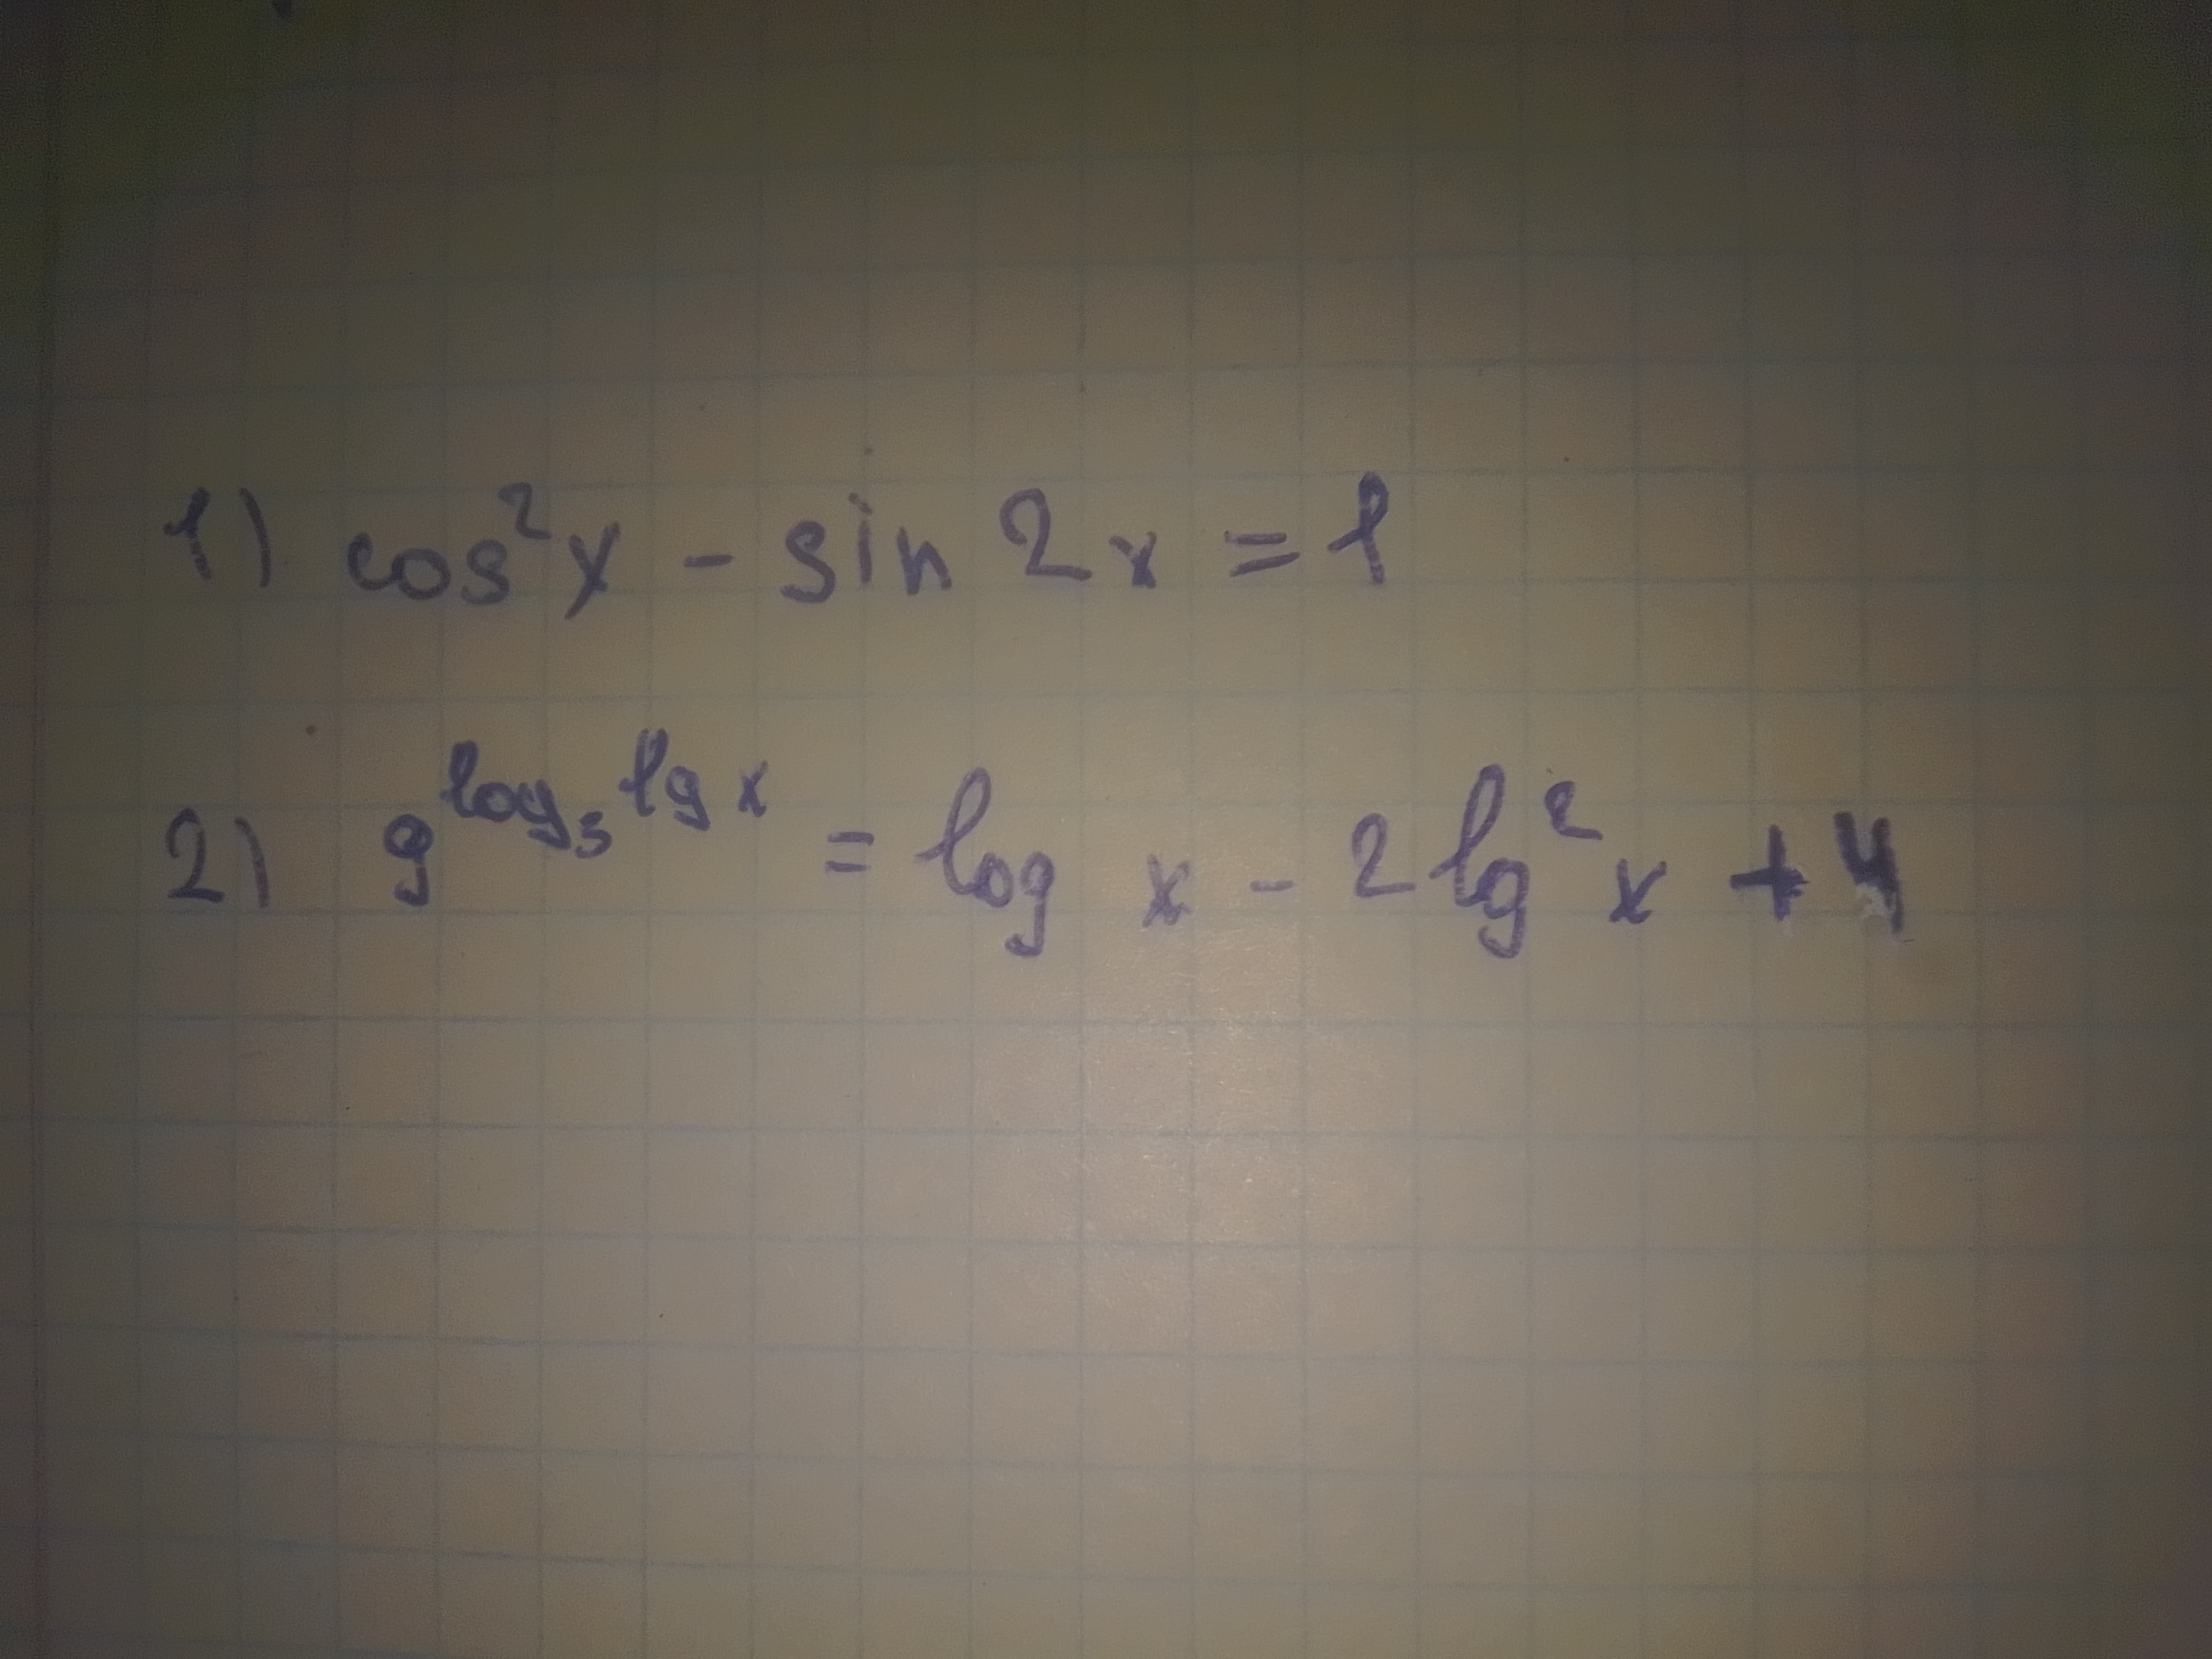 1) cos²x - sin 2x = 1
2) 9^log₃ lg x = log x - 2 lg² x + 4